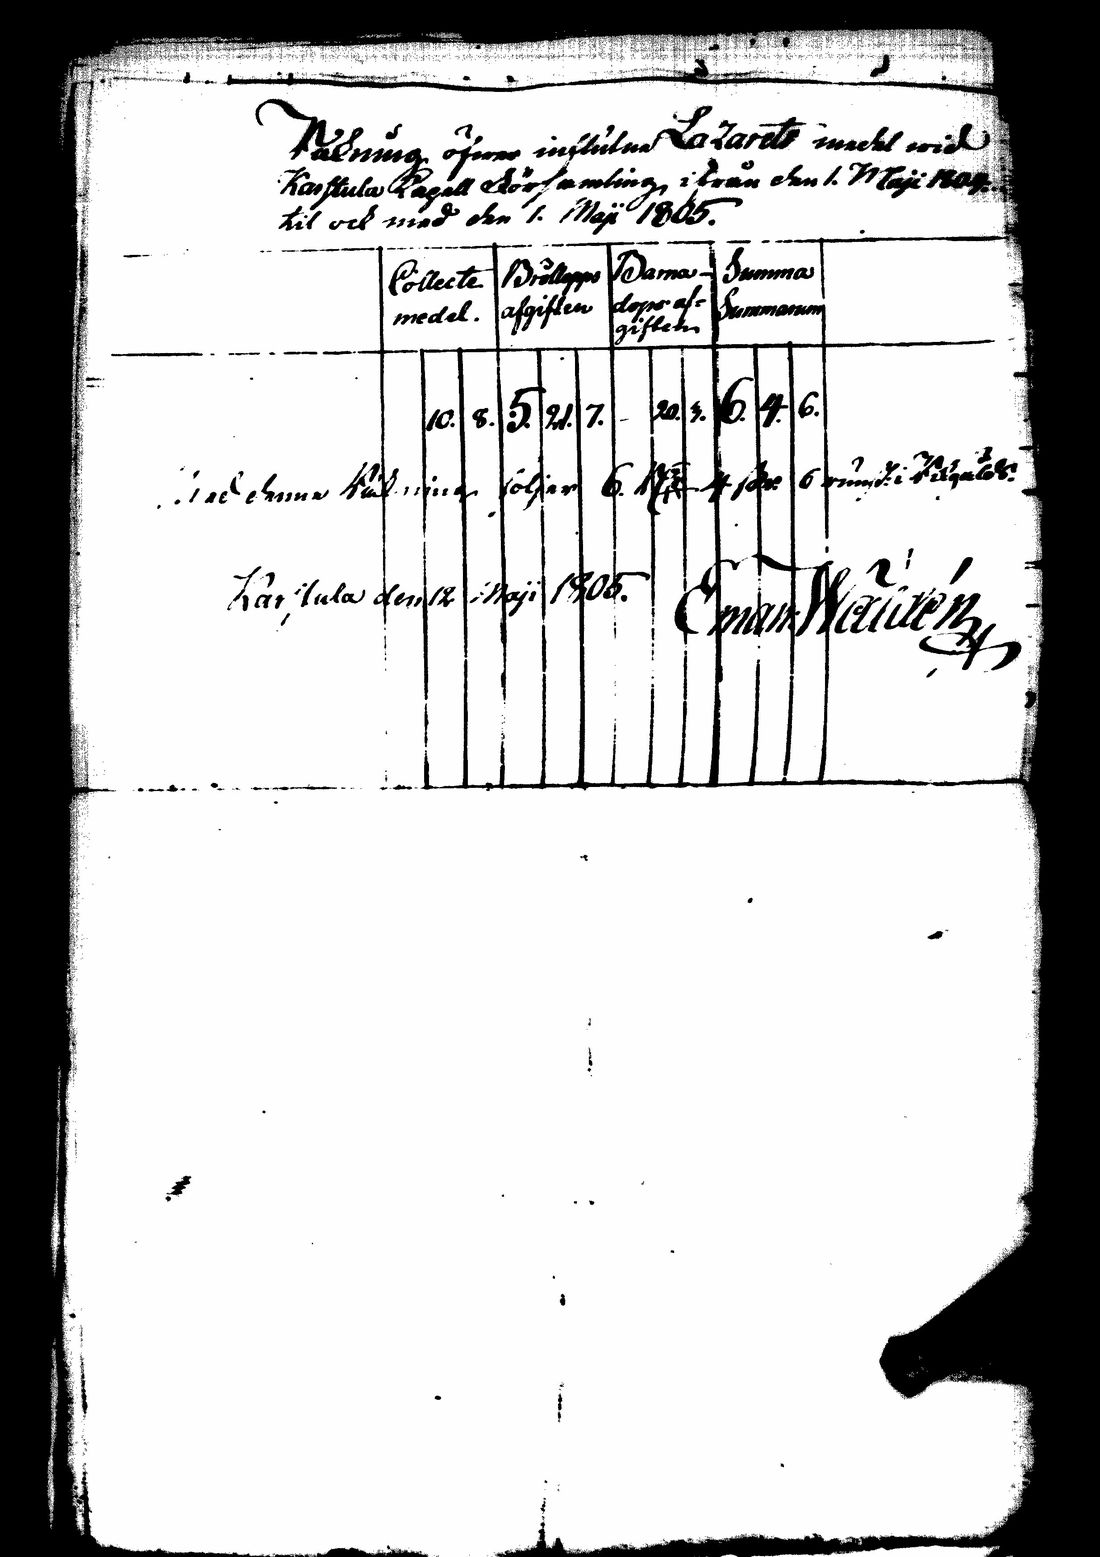 Räkning öfwer influtne Lazarets medel wid
Karstula Capell Församling, ifrån den 1. Maji 1804.
til och med den 1. Maji 1805.
Collecte medel.
Bröllopps afgiften
Barna-dops af-giften
Summa Summarum
10. 8. 5. 21. 7. - 20. 3. 6. 4. 6.
Med denne Räkning följer 6. R 4 sk. 6 rund. i Riksgälds.
Karstula den 12 Maji 1805. Eman: